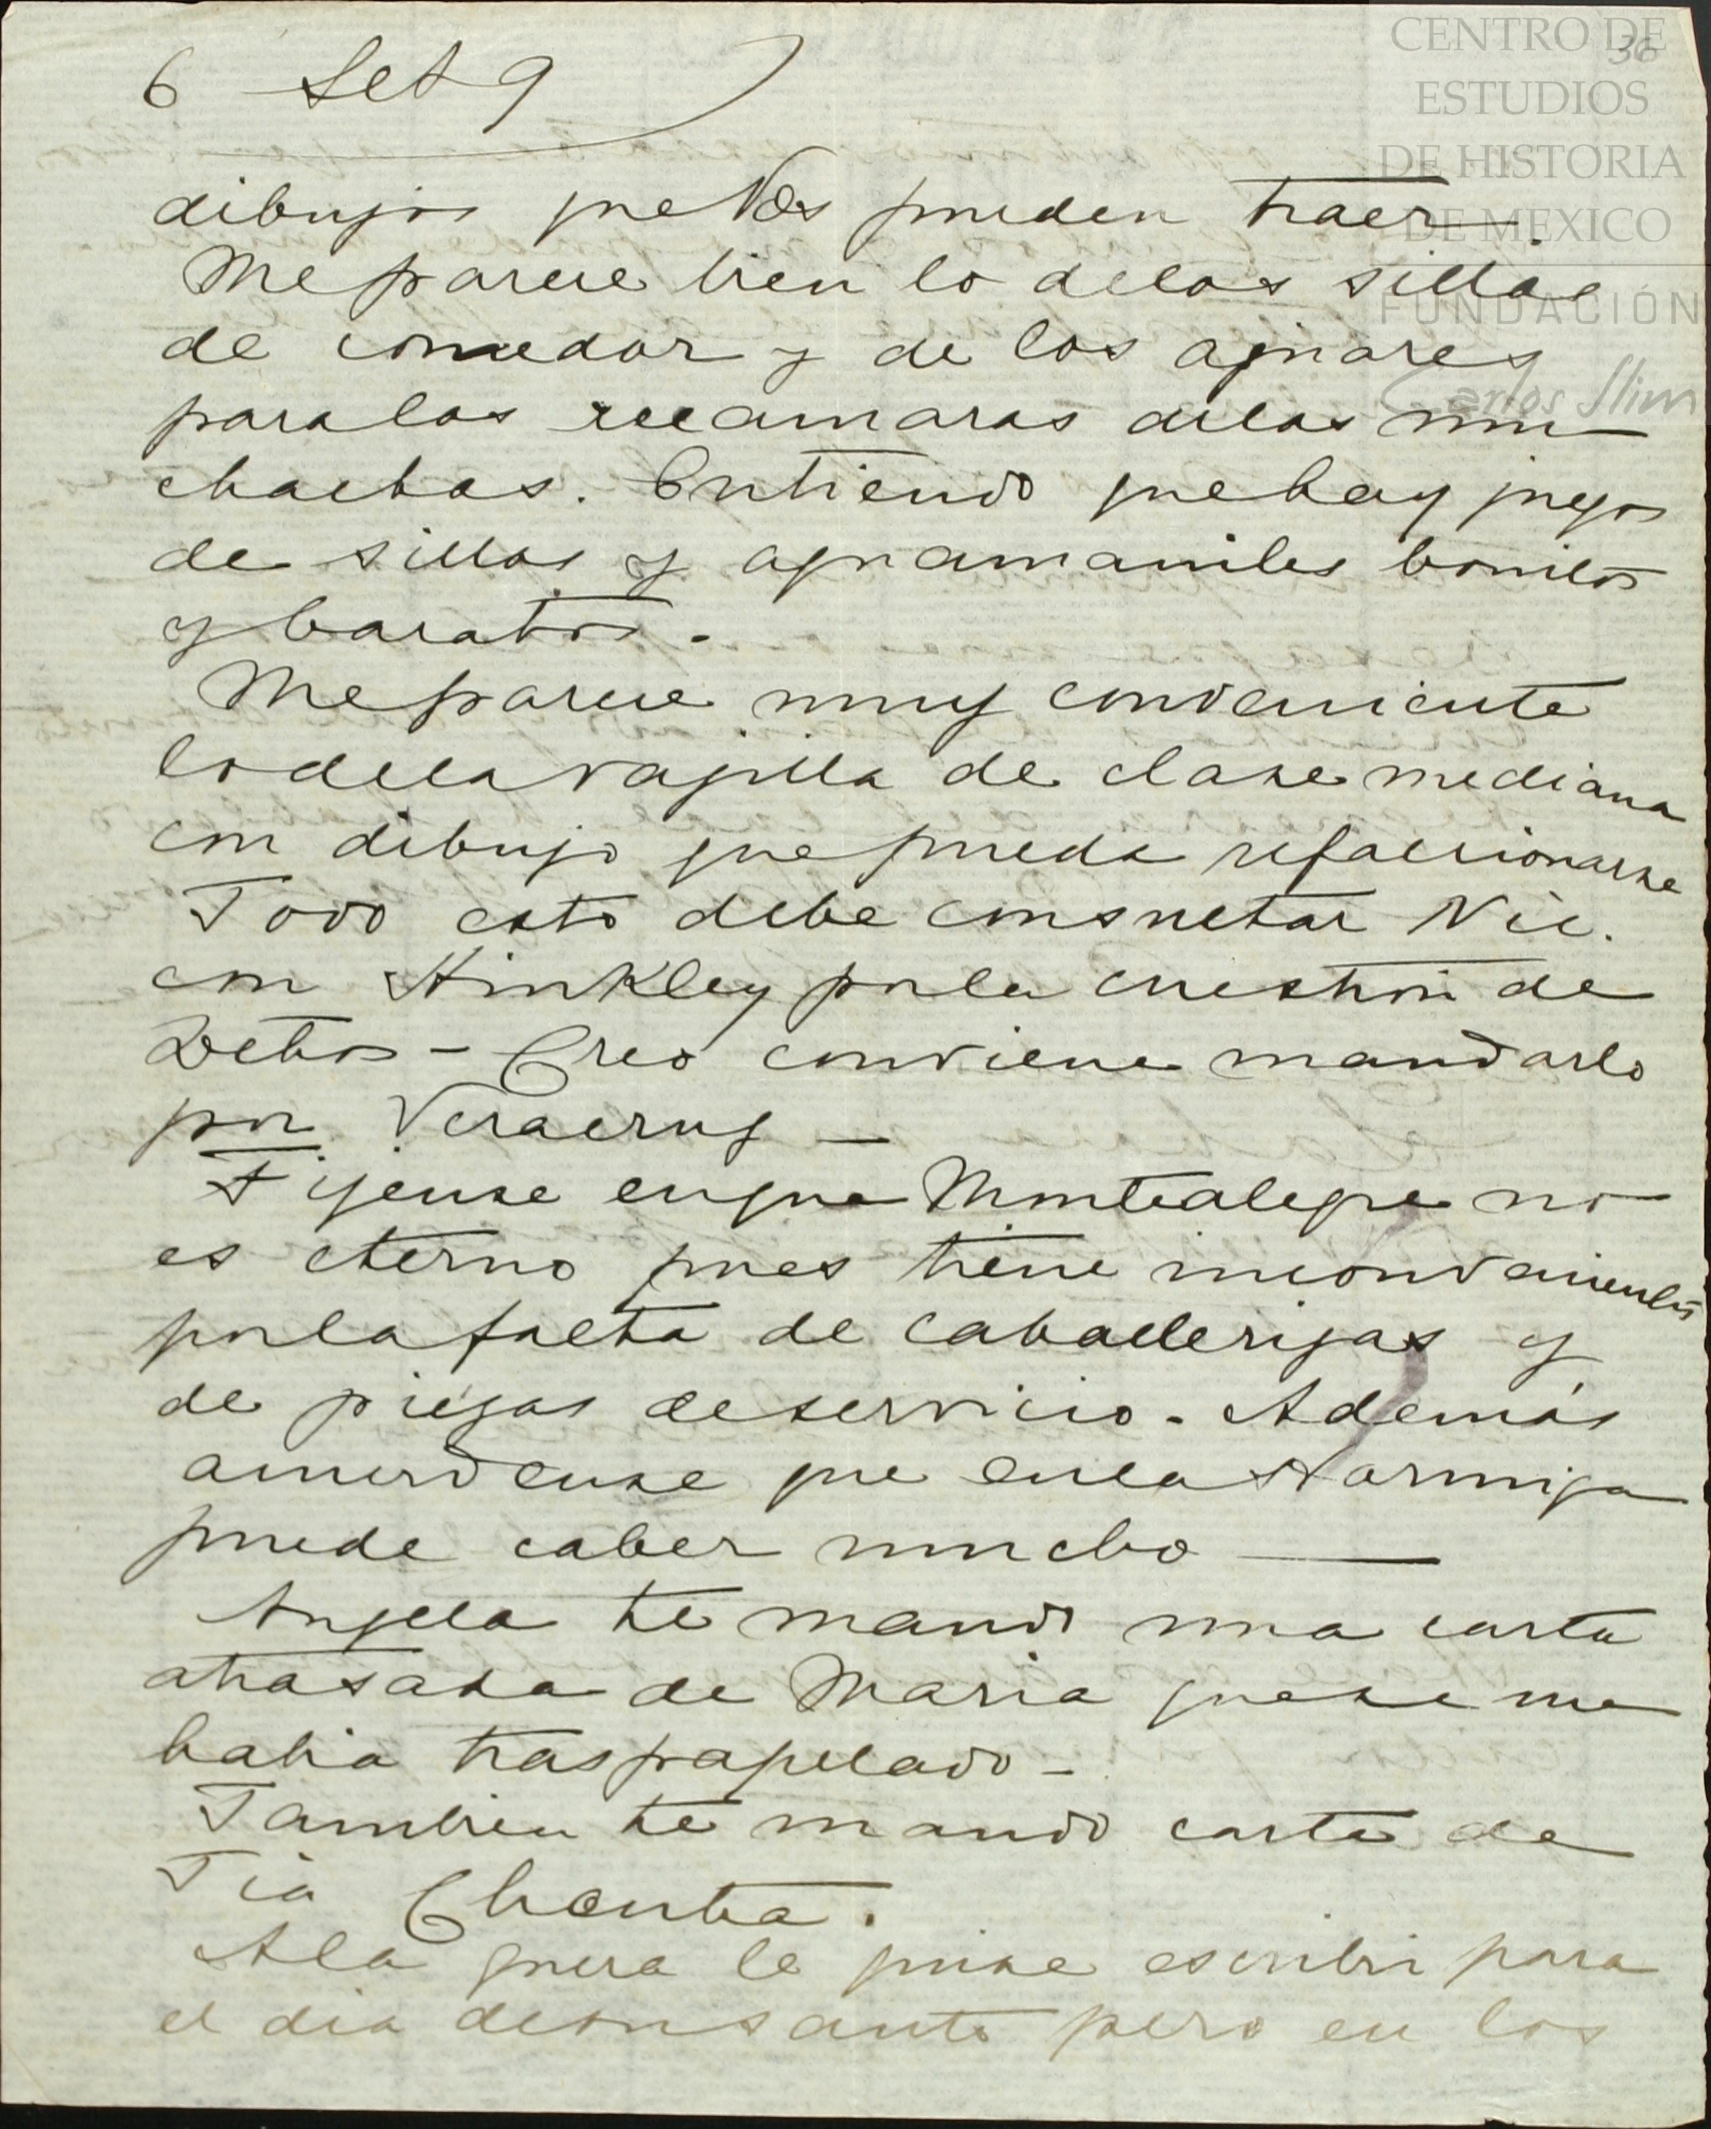 6 Set 9
36
dibujos que Vdes pueden traer
Me parece bien lo de las sillas
de comedor y de los ajuares
para las recamaras de las mu
chachas. Entiendo que hay juegos
de sillas y aguamaniles bonitos
y baratos.
Me parece muy conveniente
lo de la vajilla de clase mediana
con dibujo que pueda refaccionarse
Todo esto debe consultar Nic.
con Hinkley por la cuestion de
Dchos - Creo conviene mandarlo
por Veracruz —
Fijense en que Montealegre no
es eterno pues tiene inconvenientes
por la falta de caballerizas y
de piezas de servicio. Además
acuerdense que en la Hormiga
puede caber mucho —
Angela te mandó una carta
atrasada de Maria que se me
habia traspapelado -
Tambien te mando carta de
Tia Chonita.
A la guera le quise escribir para
el dia de su santo pero en los
CENTRO DE
ESTUDIOS
DE HISTORIA
DE MEXICO
FUNDACIÓN
Carlos Slim